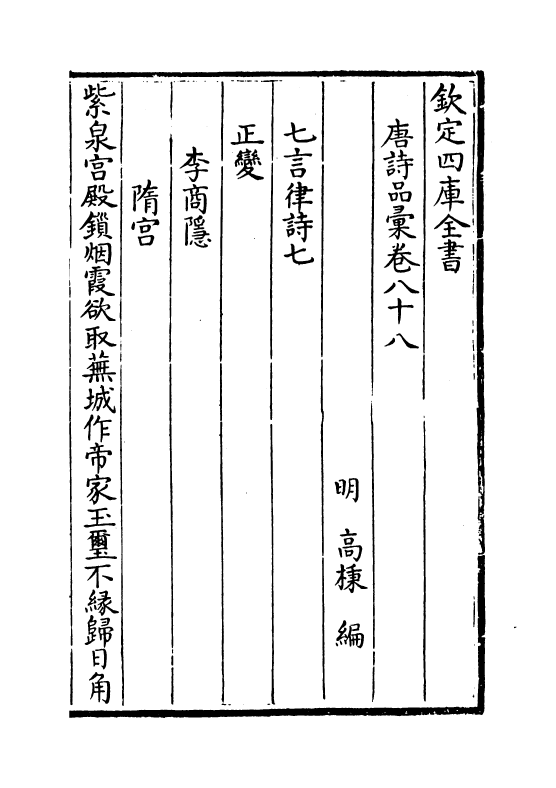 欽定四庫全書
唐詩品彙卷八十八
明 高棅 編
七言律詩七
正變
李商隱
隋宮
紫泉宮殿鎖烟霞欲取蕪城作帝家玉璽不緣歸日角